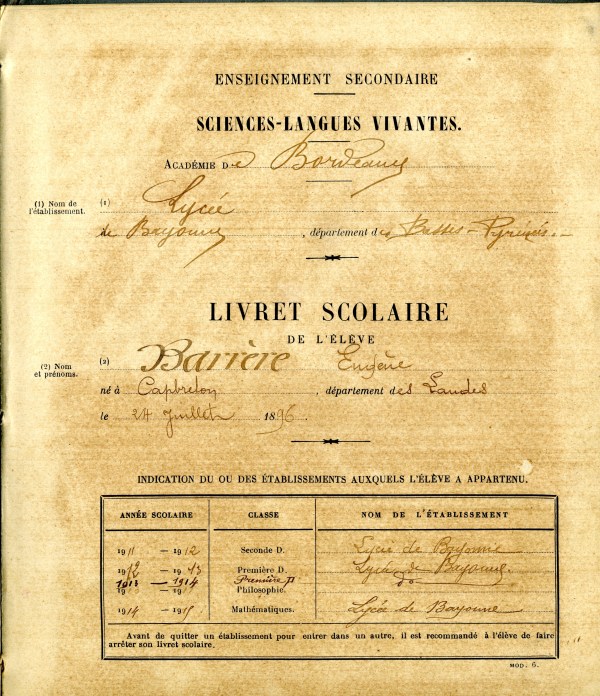 ENSEIGNEMENT SECONDAIRE
SCIENCES-LANGUES VIVANTES.
ACADÉMIE De Bordeaux
(1) Nom de l'établissement.
(1) Lycée
de Bayonne, département des Basses-Pyrénées.
LIVRET SCOLAIRE
DE L'ÉLÈVE
(2) Nom et prénoms.
(2) Barrière Eugène
né à Capbreton, département des Landes
le 24 Juillet 1896.
INDICATION DU OU DES ÉTABLISSEMENTS AUXQUELS L'ÉLÈVE A APPARTENU.
ANNÉE SCOLAIRE CLASSE NOM DE L'ÉTABLISSEMENT
1911 — 1912 Seconde D. Lycée de Bayonne
1912 — 1913 Première D. Lycée de Bayonne.
1913 — 1914 Première D do
Philosophie.
1914 — 1915 Mathématiques. Lycée de Bayonne
Avant de quitter un établissement pour entrer dans un autre, il est recommandé à l'élève de faire
arrêter son livret scolaire.
MOD. 6.